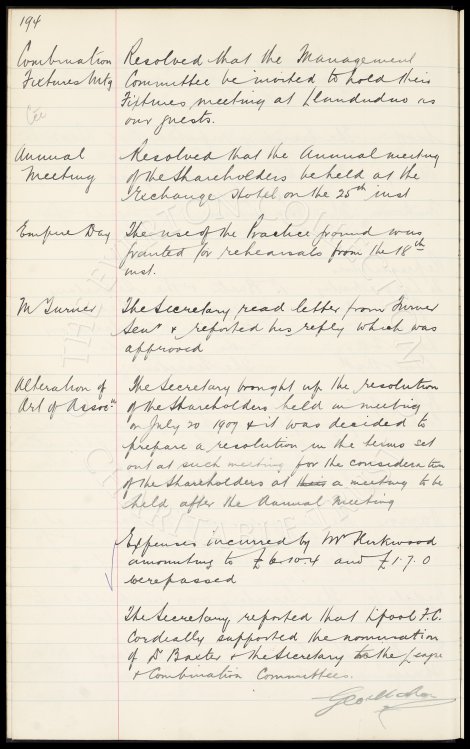 194
Combination
Fixtures Mtg
Resolved that the Management
Committee be invited to hold their
Fixtures meeting at Llandudno as
our guests.
Annual
Meeting
Resolved that the Annual meeting
of the Shareholders be held at the
Exchange Hotel on the 25th inst
Empire Day
The use of the Practice ground was
granted for rehearsals from the 18th
inst.
M Turner
The Secretary read letter from Turner
Senr & reported his reply which was
approved
Alteration of
Art of Assocn
The Secretary brought up the resolution
of the Shareholders held in meeting
on July 20 1907 & it was decided to
prepare a resolution in the terms set
out at such meeting for the consideration
of the Shareholders at a meeting to be
held after the Annual Meeting
Expenses incurred by Mr Kirkwood
amounting to £6.10.4 and £1.7.0
were passed
The Secretary reported that L'pool F.C.
Cordially supported the nomination
of Dr Baxter & the Secretary to the League
& Combination Committees.
THE EVERTON COLLECTION
CHARITABLE TRUST